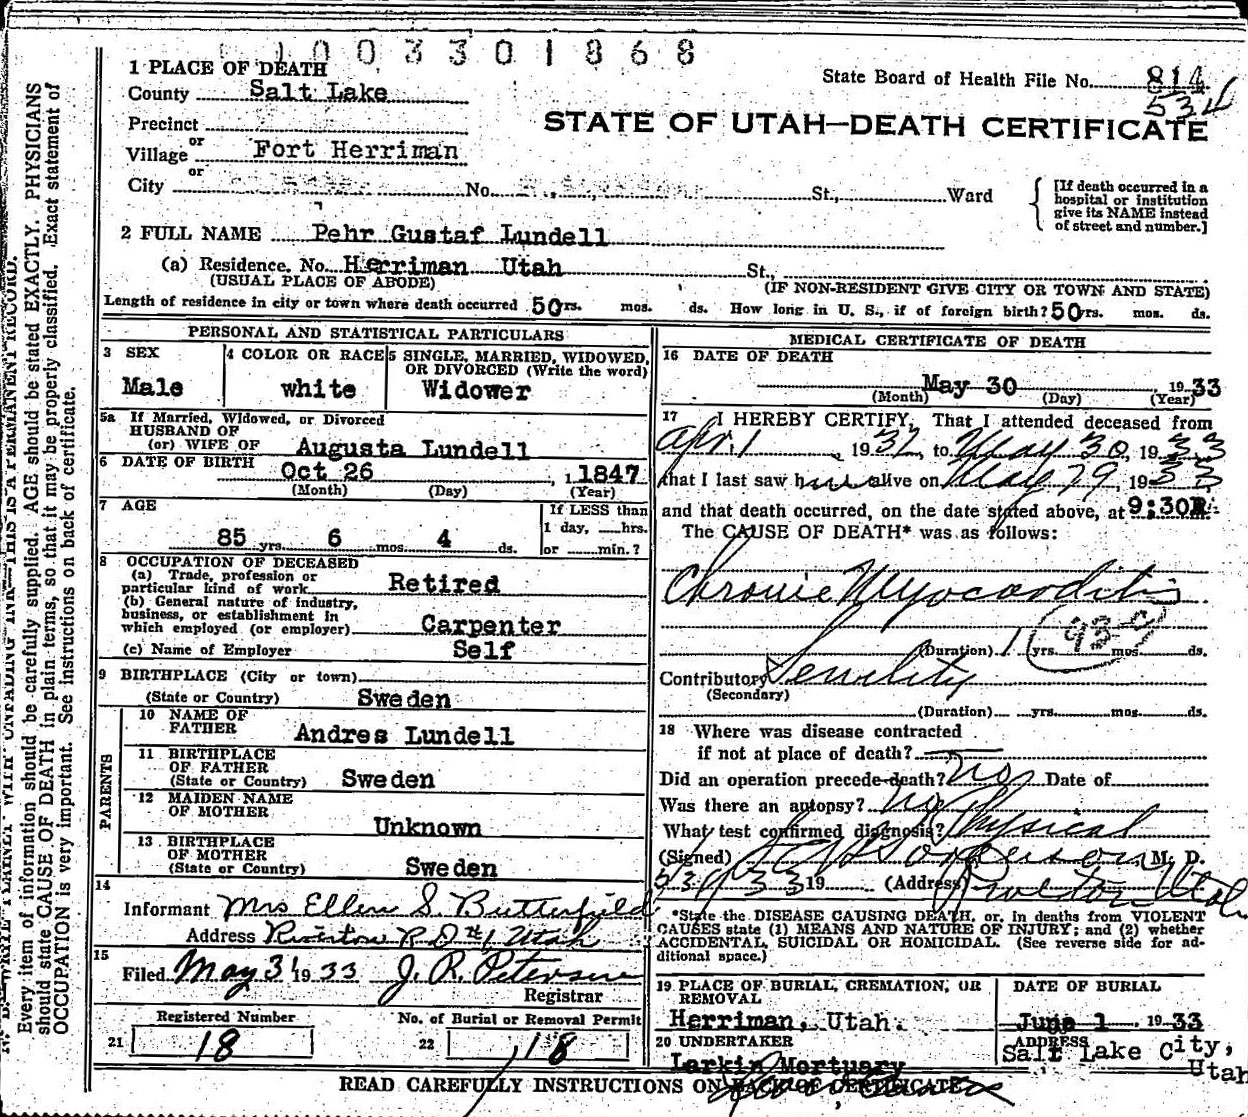 1003301868
1 PLACE OF DEATH
State Board of Health File No. 814
County Salt Lake
534
STATE OF UTAH—DEATH CERTIFICATE
Precinct
or
Village Fort Herriman
or
City No. St., Ward
[If death occurred in a
hospital or institution
give its NAME instead
of street and number.]
2 FULL NAME Pehr Gustaf Lundell
(a) Residence. No. Herriman Utah St.,
(USUAL PLACE OF ABODE) (IF NON-RESIDENT GIVE CITY OR TOWN AND STATE)
Length of residence in city or town where death occurred 50 yrs. mos. ds. How long in U. S., if of foreign birth? 50 yrs. mos. ds.
PERSONAL AND STATISTICAL PARTICULARS
3 SEX
Male
4 COLOR OR RACE
white
5 SINGLE, MARRIED, WIDOWED,
OR DIVORCED (Write the word)
Widower
5a If Married, Widowed, or Divorced
HUSBAND OF
(or) WIFE OF Augusta Lundell
6 DATE OF BIRTH
Oct 26 , 1 1847
(Month) (Day) (Year)
7 AGE
85 yrs. 6 mos. 4 ds.
If LESS than
1 day, hrs.
or min.?
8 OCCUPATION OF DECEASED
(a) Trade, profession or
particular kind of work Retired
(b) General nature of industry,
business, or establishment in
which employed (or employer) Carpenter
(c) Name of Employer Self
9 BIRTHPLACE (City or town)
(State or Country) Sweden
PARENTS
10 NAME OF
FATHER Andres Lundell
11 BIRTHPLACE
OF FATHER
(State or Country) Sweden
12 MAIDEN NAME
OF MOTHER
Unknown
13 BIRTHPLACE
OF MOTHER
(State or Country) Sweden
14
Informant Mrs Ellen S. Butterfield
Address Riverton R.D #1 Utah
15
Filed May 31 1933 J. R. Peterson
Registrar
Registered Number
21 18
No. of Burial or Removal Permit
22 18
MEDICAL CERTIFICATE OF DEATH
16 DATE OF DEATH
May 30 , 1933
(Month) (Day) (Year)
17 I HEREBY CERTIFY, That I attended deceased from
Apr 1 , 1932, to May 30, 1933
that I last saw him alive on May 29, 1933
and that death occurred, on the date stated above, at 9:30 m.
The CAUSE OF DEATH* was as follows:
Chronic Myocarditis
93-c
(Duration) 1 yrs. mos. ds.
Contributory Senility
(Secondary)
(Duration) yrs. mos. ds.
18 Where was disease contracted
if not at place of death?
Did an operation precede death? No Date of
Was there an autopsy? No
What test confirmed diagnosis? Physical
(Signed) Sorenson M. D.
5/30/33 19 (Address) Riverton Utah
*State the DISEASE CAUSING DEATH, or, in deaths from VIOLENT
CAUSES state (1) MEANS AND NATURE OF INJURY; and (2) whether
ACCIDENTAL, SUICIDAL OR HOMICIDAL. (See reverse side for ad-
ditional space.)
19 PLACE OF BURIAL, CREMATION, OR
REMOVAL
Herriman, Utah.
DATE OF BURIAL
June 1 , 1933
20 UNDERTAKER
Larkin Mortuary
ADDRESS
Salt Lake City,
Utah
READ CAREFULLY INSTRUCTIONS ON BACK OF CERTIFICATE
Every item of information should be carefully supplied. AGE should be stated EXACTLY. PHYSICIANS
should state CAUSE OF DEATH in plain terms, so that it may be properly classified. Exact statement of
OCCUPATION is very important. See instructions on back of certificate.